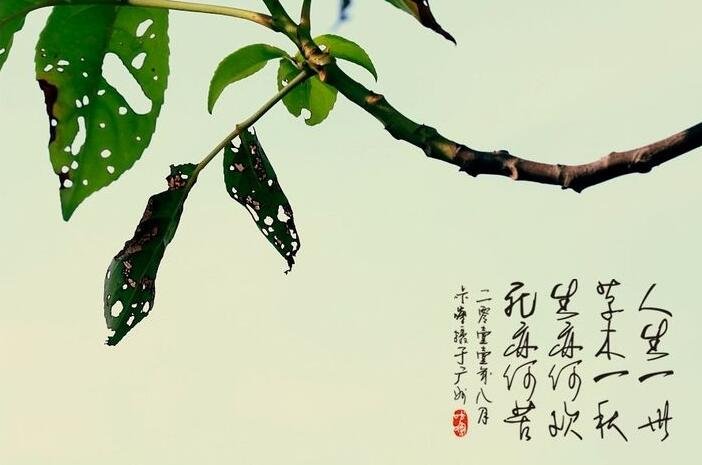 人生一世
草木一秋
生亦何欢
死亦何苦
二零壹壹年八月
卡峰摄于广州